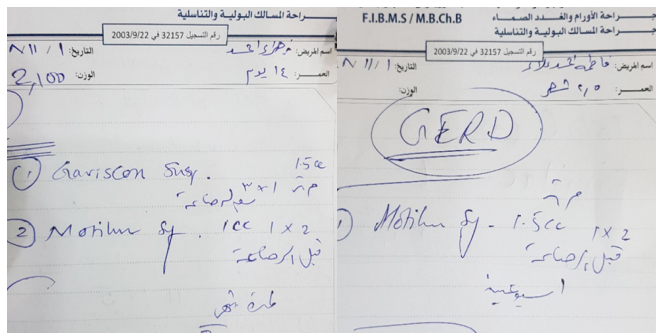 ـراحة المسالك البولية والتناسلية
رقم التسجيل 32157 في 2003/9/22
اسم المريض: زهراء احمد
التاريخ: ١ / ١١ /
العمـــر: ١٤ يوم
الوزن: 2,100
① Gaviscon Susp. 1.5cc
١ × ٣ بعد الرضاعة
② Motilium Sy. 1cc 1 x 2
قبل الرضاعة
لمدة شهر
F.I.B.MS / M.B.Ch.B
جـراحة الأورام والغـدد الصمـاء
جـراحة المسالك البولية والتناسلية
رقم التسجيل 32157 في 2003/9/22
اسم المريض: فاطمة احمد
التاريخ: ١ / ١١ /
العمـــر: ٢,٥ شهر
الوزن:
GERD
Motilium Sy. 1.5cc 1 x 2
قبل الرضاعة